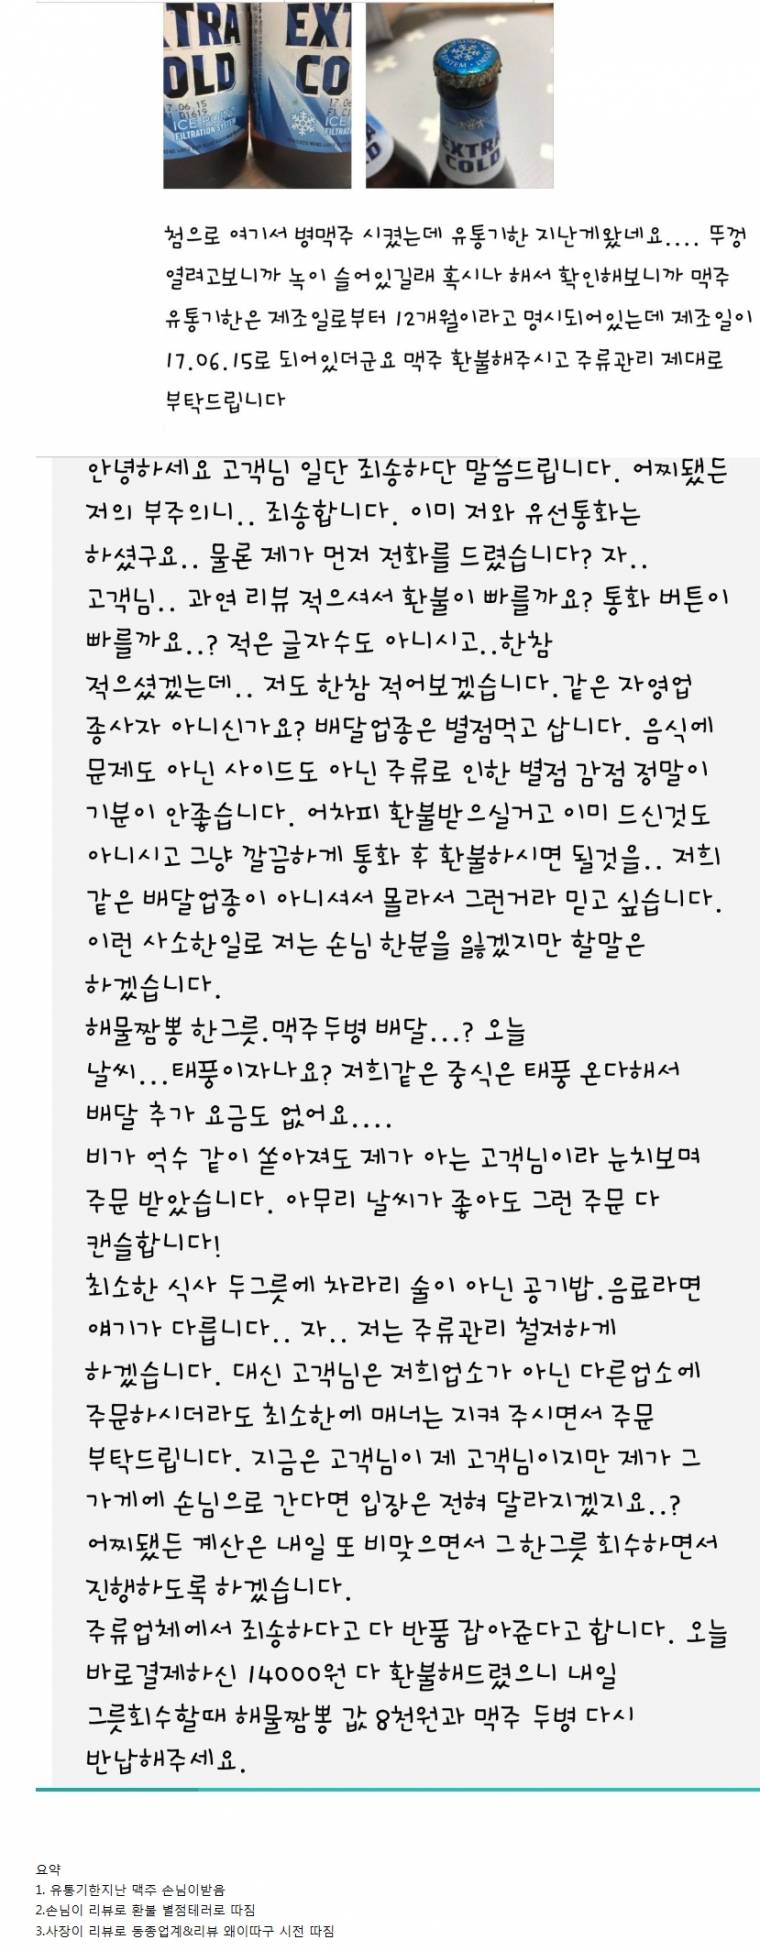 XTRA
OLD
EXT
CO
17.06.15
01619
17.06
ICE
ICE
FILTRATION SYSTEM
FILTRAT
SYSTEM
EXTRA
COLD
첨으로 여기서 병맥주 시켰는데 유통기한 지난게왔네요.... 뚜껑
열려고보니까 녹이 슬어있길래 혹시나 해서 확인해보니까 맥주
유통기한은 제조일로부터 12개월이라고 명시되어있는데 제조일이
17.06.15로 되어있더군요 맥주 환불해주시고 주류관리 제대로
부탁드립니다
안녕하세요 고객님 일단 죄송하단 말씀드립니다. 어찌됐든
저의 부주의니.. 죄송합니다. 이미 저와 유선통화는
하셨구요.. 물론 제가 먼저 전화를 드렸습니다? 자..
고객님.. 과연 리뷰 적으셔서 환불이 빠를까요? 통화 버튼이
빠를까요..? 적은 글자수도 아니시고..한참
적으셨겠는데.. 저도 한참 적어보겠습니다.같은 자영업
종사자 아니신가요? 배달업종은 별점먹고 삽니다. 음식에
문제도 아닌 사이드도 아닌 주류로 인한 별점 감점 정말이
기분이 안좋습니다. 어차피 환불받으실거고 이미 드신것도
아니시고 그냥 깔끔하게 통화 후 환불하시면 될것을.. 저희
같은 배달업종이 아니셔서 몰라서 그런거라 믿고 싶습니다.
이런 사소한일로 저는 손님 한분을 잃겠지만 할말은
하겠습니다.
해물짬뽕 한그릇.맥주두병 배달...? 오늘
날씨...태풍이자나요? 저희같은 중식은 태풍 온다해서
배달 추가 요금도 없어요....
비가 억수 같이 쏟아져도 제가 아는 고객님이라 눈치보며
주문 받았습니다. 아무리 날씨가 좋아도 그런 주문 다
캔슬합니다!
최소한 식사 두그릇에 차라리 술이 아닌 공기밥.음료라면
얘기가 다릅니다.. 자.. 저는 주류관리 철저하게
하겠습니다. 대신 고객님은 저희업소가 아닌 다른업소에
주문하시더라도 최소한에 매너는 지켜 주시면서 주문
부탁드립니다. 지금은 고객님이 제 고객님이지만 제가 그
가게에 손님으로 간다면 입장은 전혀 달라지겠지요..?
어찌됐든 계산은 내일 또 비맞으면서 그한그릇 회수하면서
진행하도록 하겠습니다.
주류업체에서 죄송하다고 다 반품 잡아준다고 합니다. 오늘
바로결제하신 14000원 다 환불해드렸으니 내일
그릇회수할때 해물짬뽕 값 8천원과 맥주 두병 다시
반납해주세요.
요약
1. 유통기한지난 맥주 손님이받음
2.손님이 리뷰로 환불 별점테러로 따짐
3.사장이 리뷰로 동종업계&리뷰 왜이따구 시전 따짐